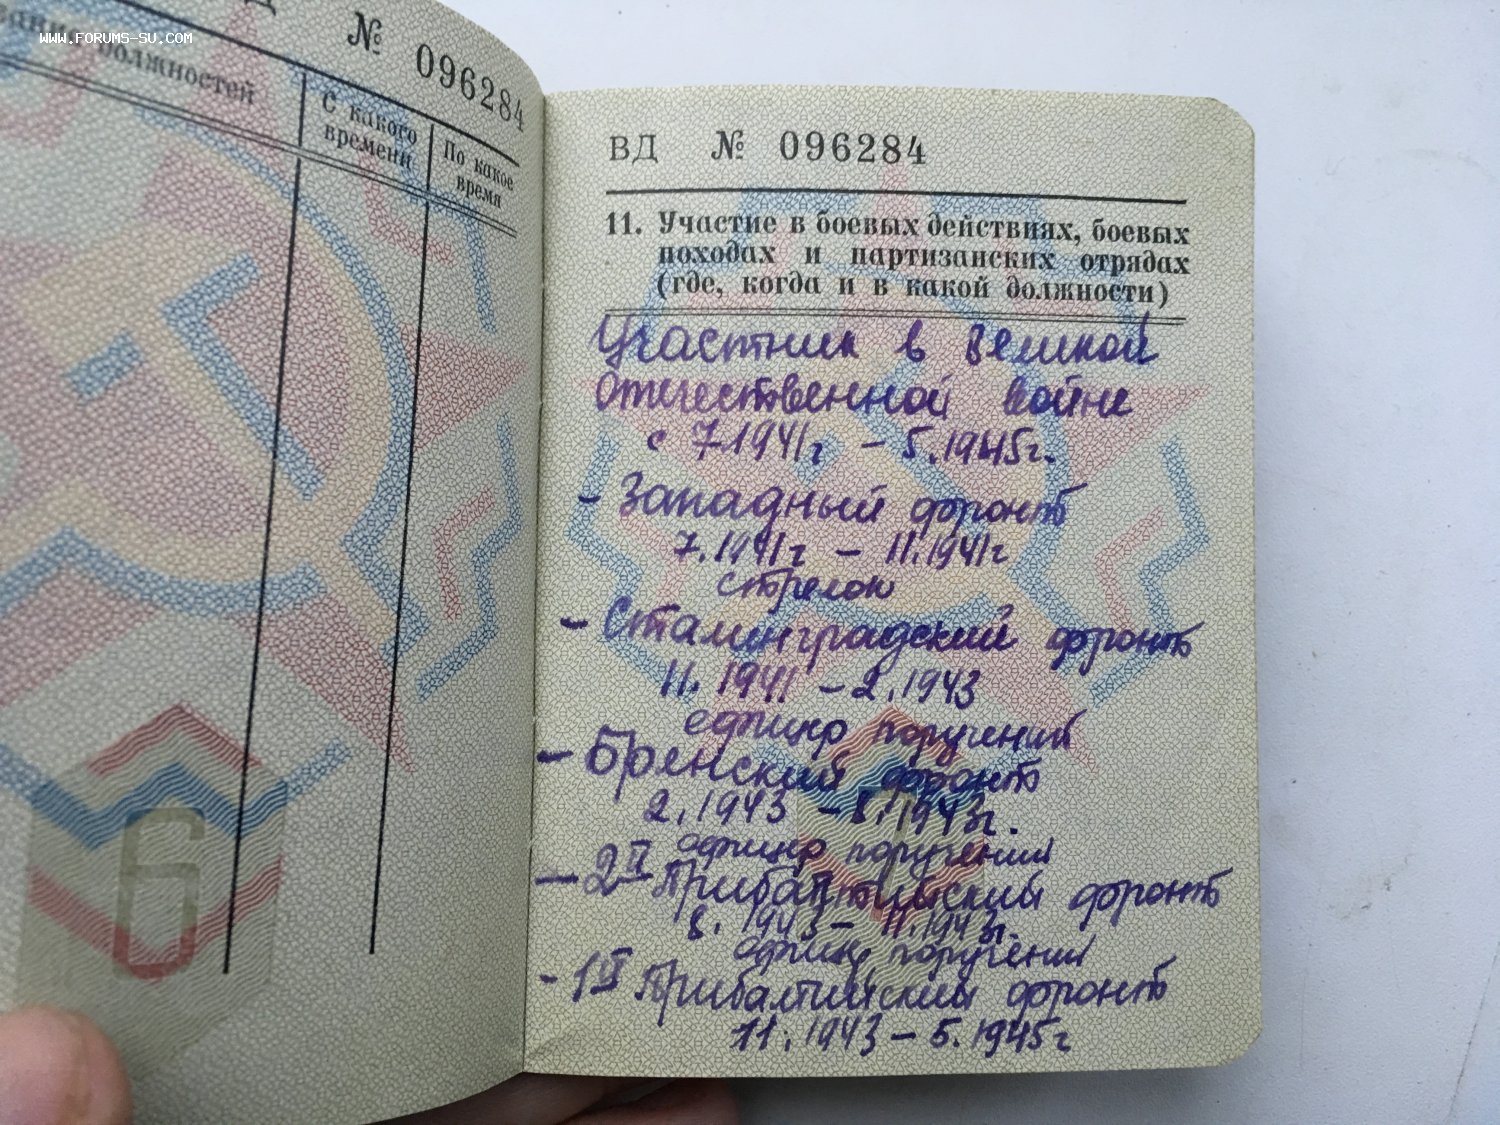 WWW.FORUMS-SU.COM
№ 096284
должностей
С какого
времени
По какое
время
6
ВД № 096284
11. Участие в боевых действиях, боевых
походах и партизанских отрядах
(где, когда и в какой должности)
Участник в Великой
Отечественной войне
с 7.1941г – 5.1945г.
- Западный фронт
7.1941г – 11.1941г
стрелок
- Сталинградский фронт
11.1941 – 2.1943
офицер поручений
- Брянский фронт
2.1943 – 8.1943г.
офицер поручений
- 2й Прибалтийский фронт
8.1943 – 11.1943г.
офицер поручений
- 1й Прибалтийский фронт
11.1943 – 5.1945г